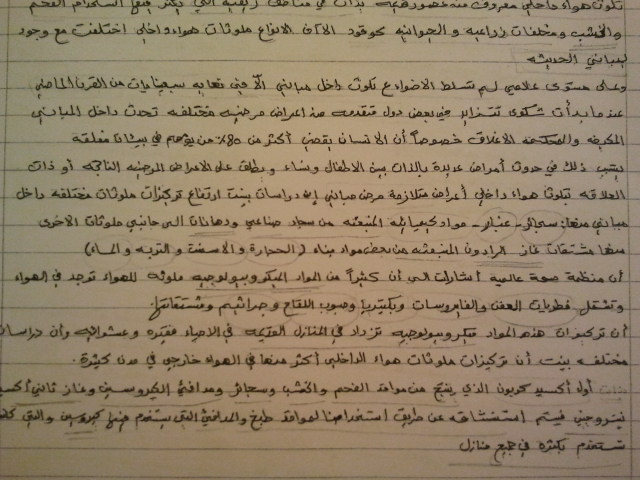 تلوث هواء داخلي معروف منذ عصور قديمة بذات في مناطق ريفية التي يكثر فيها استخدام الفحم
والخشب ومخلفات زراعية و الحيوانية كوقود الآن الانواع ملوثات هواء داخلي اختلفت مع وجود
لمباني الحديثه
وعلى مستوى علاصي لم تتسلط الاضواء ع تلوث داخل مباني الآ في نهايه سبعينيات من القرن الماضي
عندما بدأت شكوى تتزايد في بعض دول متقدمه من اعراض مرضيه مختلفه تحدث داخل المباني
المكيفه والمحكمه الاغلاق خصوصاً أن الانسان يقضي أكثر من 80% من يومهم في بيئات مغلقة
بسبب ذلك في حدوث أمراض عديدة بالذات بين الاطفال ونساء ويطلق على الاعراض المرضيه الناتجه أو ذات
العلاقه بتلوث هواء داخلي أعراض متلازمة مرض مباني إن دراسات بينت ارتفاع تركيزات ملوثات مختلفه داخل
مباني منها: سجائر - غبار - مواد كيميائيه المنبعثه من سجاد صناعي ودهانات الى جانبي ملوثات الاخرى
منها مشتقات غاز الرادون المنبعثه من بعض مواد بناء (الحجارة والاسمنت و التربه و الماء)
أن منظمة صحة عالمية أشارت الى أن كثيراً من المواد الميكروبيولوجيه ملوثه للهواء توجد في الهواء
وتشمل فطريات العفن والفايروسات وبكتيريا وحبوب اللقاح وجراثيم ومشتقاتها.
أن تركيزات هذه المواد ميكروبيولوجيه تزداد في المنازل القديمه في الاحياء فقيره وعشوائيه وأن دراسات
مختلفه بينت أن تركيزات ملوثات هواء الداخلي أكثر منها في الهواء خارجي في مدن كثيرة.
أول أكسيد كربون الذي ينتج من مواقد الفحم والخشب وسجائر ومدافئ الكيروسين وغاز ثاني أكسيد
نيتروجين فيتم استنشاقه عن طريق استخدامنا لمواقد طبخ والمدافئ التي يستخدم فيها كيروسين والتي
تستخدم بكثره في جميع منازل